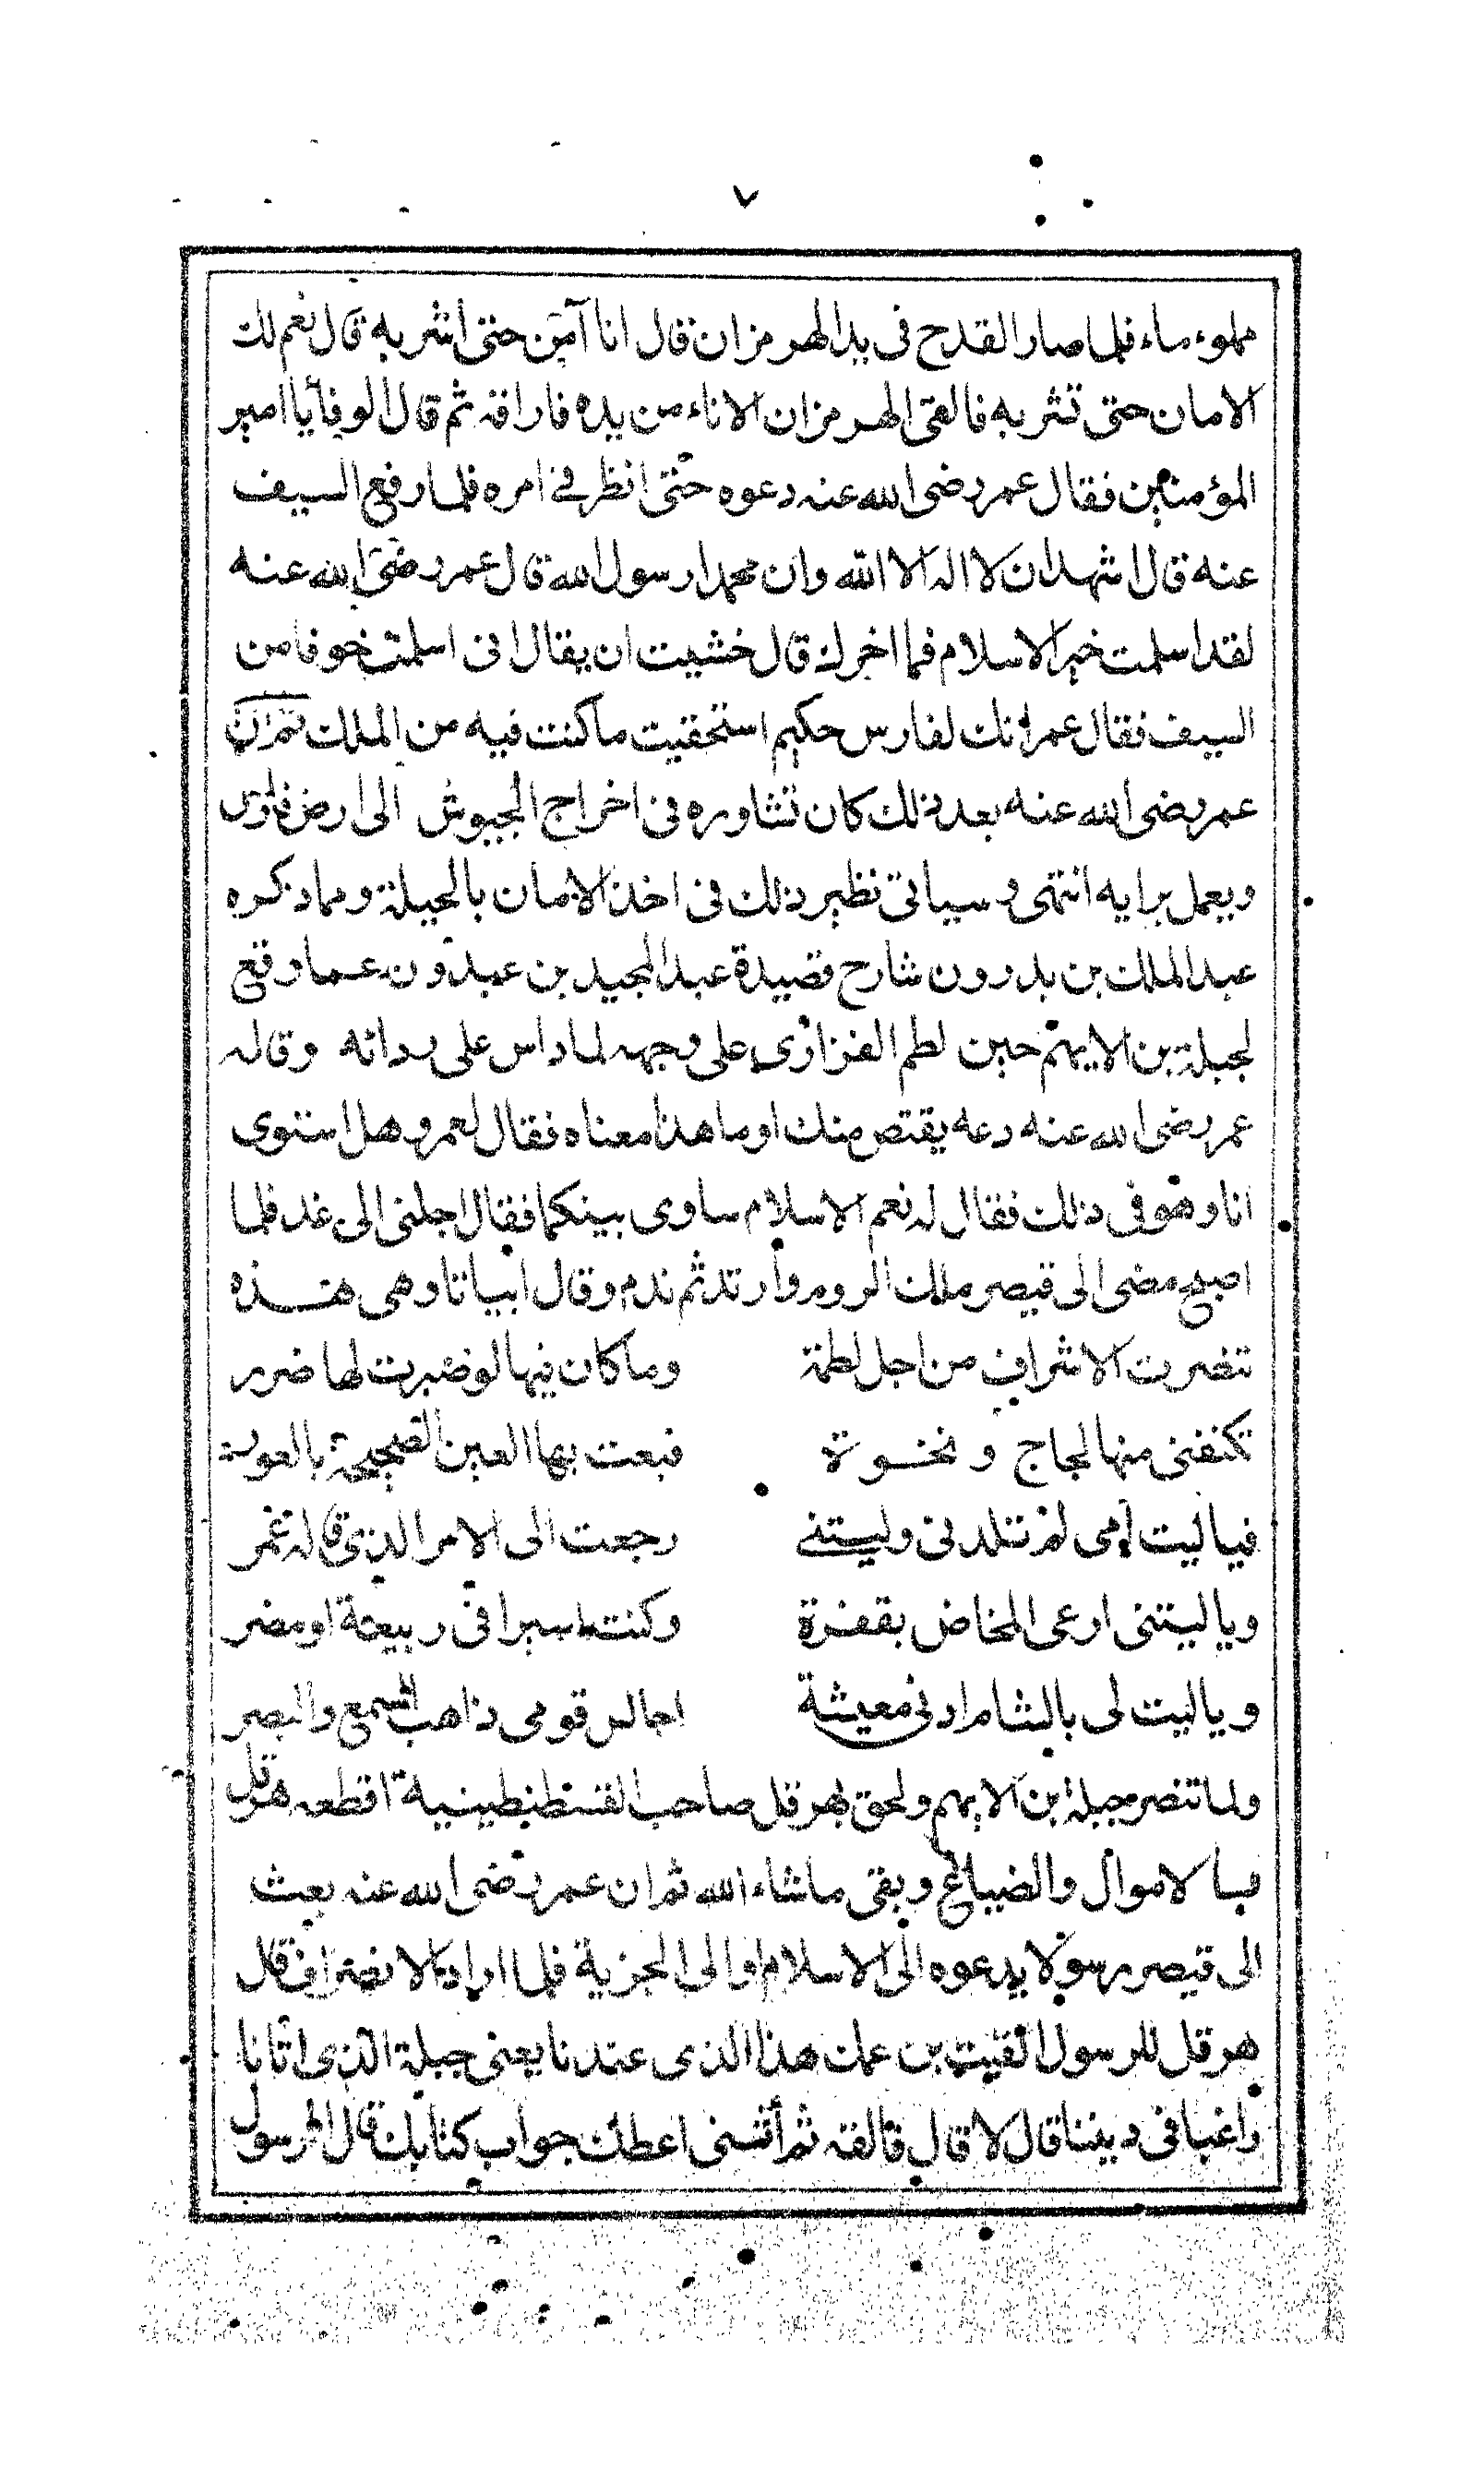 ٧
مملوء ماء فلما صار القدح فى يد الهرمزان قال انا آمن حتى اشربه قال نعم لك
الامان حتى تشربه فالقى الهرمزان الاناء من يده فاراقه ثم قال الوفأ يا امير
المؤمنين فقال عمر رضى الله عنه دعوه حتى انظر فى امره فلما رفع السيف
عنه قال اشهد ان لا اله الا الله وان محمدا رسول الله قال عمر رضى الله عنه
لقد اسلمت خير الاسلام فما اخرك قال خشيت ان يقال انى اسلمت خوفا من
السيف فقال عمر انك لفارس حكيم استحقيت ما كنت فيه من الملك ثم ان
عمر رضى الله عنه بعد ذلك كان تشاوره فى اخراج الجيوش الى ارض فارس
ويعمل برايه انتهى وسياتى نظير ذلك فى اخذ الامان بالحيلة ومما ذكره
عبد الملك بن بدرون شارح قصيدة عبد المجيد بن عبدون عما وقع
لجبلة بن الايهم حين لطم الفزارى على وجهه لما داس على ردائه وقال له
عمر رضى الله عنه دعه يقتص منك او ما هذا معناه فقال لعمر وهل استوى
انا وهو فى ذلك فقال له نعم الاسلام ساوى بينكما فقال اجلنى الى غد فلما
اصبح مضى الى قيصر ملك الروم وارتد ثم ندم وقال ابياتا وهى هذه
تنصرت الاشراف من اجل لطمة وما كان فيها لو صبرت لها ضرر
تكنفنى منها لجاج ونخوة فبعت بها العين الصحيحة بالعور
فيا ليت امى لم تلدنى وليتنى رجعت الى الامر الذى قاله عمر
ويا ليتنى ارعى المخاض بقفرة وكنت اسيرا فى ربيعة او مضر
ويا ليت لى بالشام ادنى معيشة اجالس قومى ذاهب السمع والبصر
ولما تنصر جبلة ابن الايهم ولحق بهرقل صاحب القسطنطينية اقطعه هرقل
بالاموال والضياع وبقى ما شاء الله ثم ان عمر رضى الله عنه بعث
الى قيصر رسولا يدعوه الى الاسلام او الى الجزية فلما اراد الانصراف قال
هرقل للرسول القيت بن عمك هذا الذى عندنا يعنى جبلة الذى اتانا
راغبا فى ديننا قال لا قال فالقه ثم أتنى اعطك جواب كتابك قال الرسول